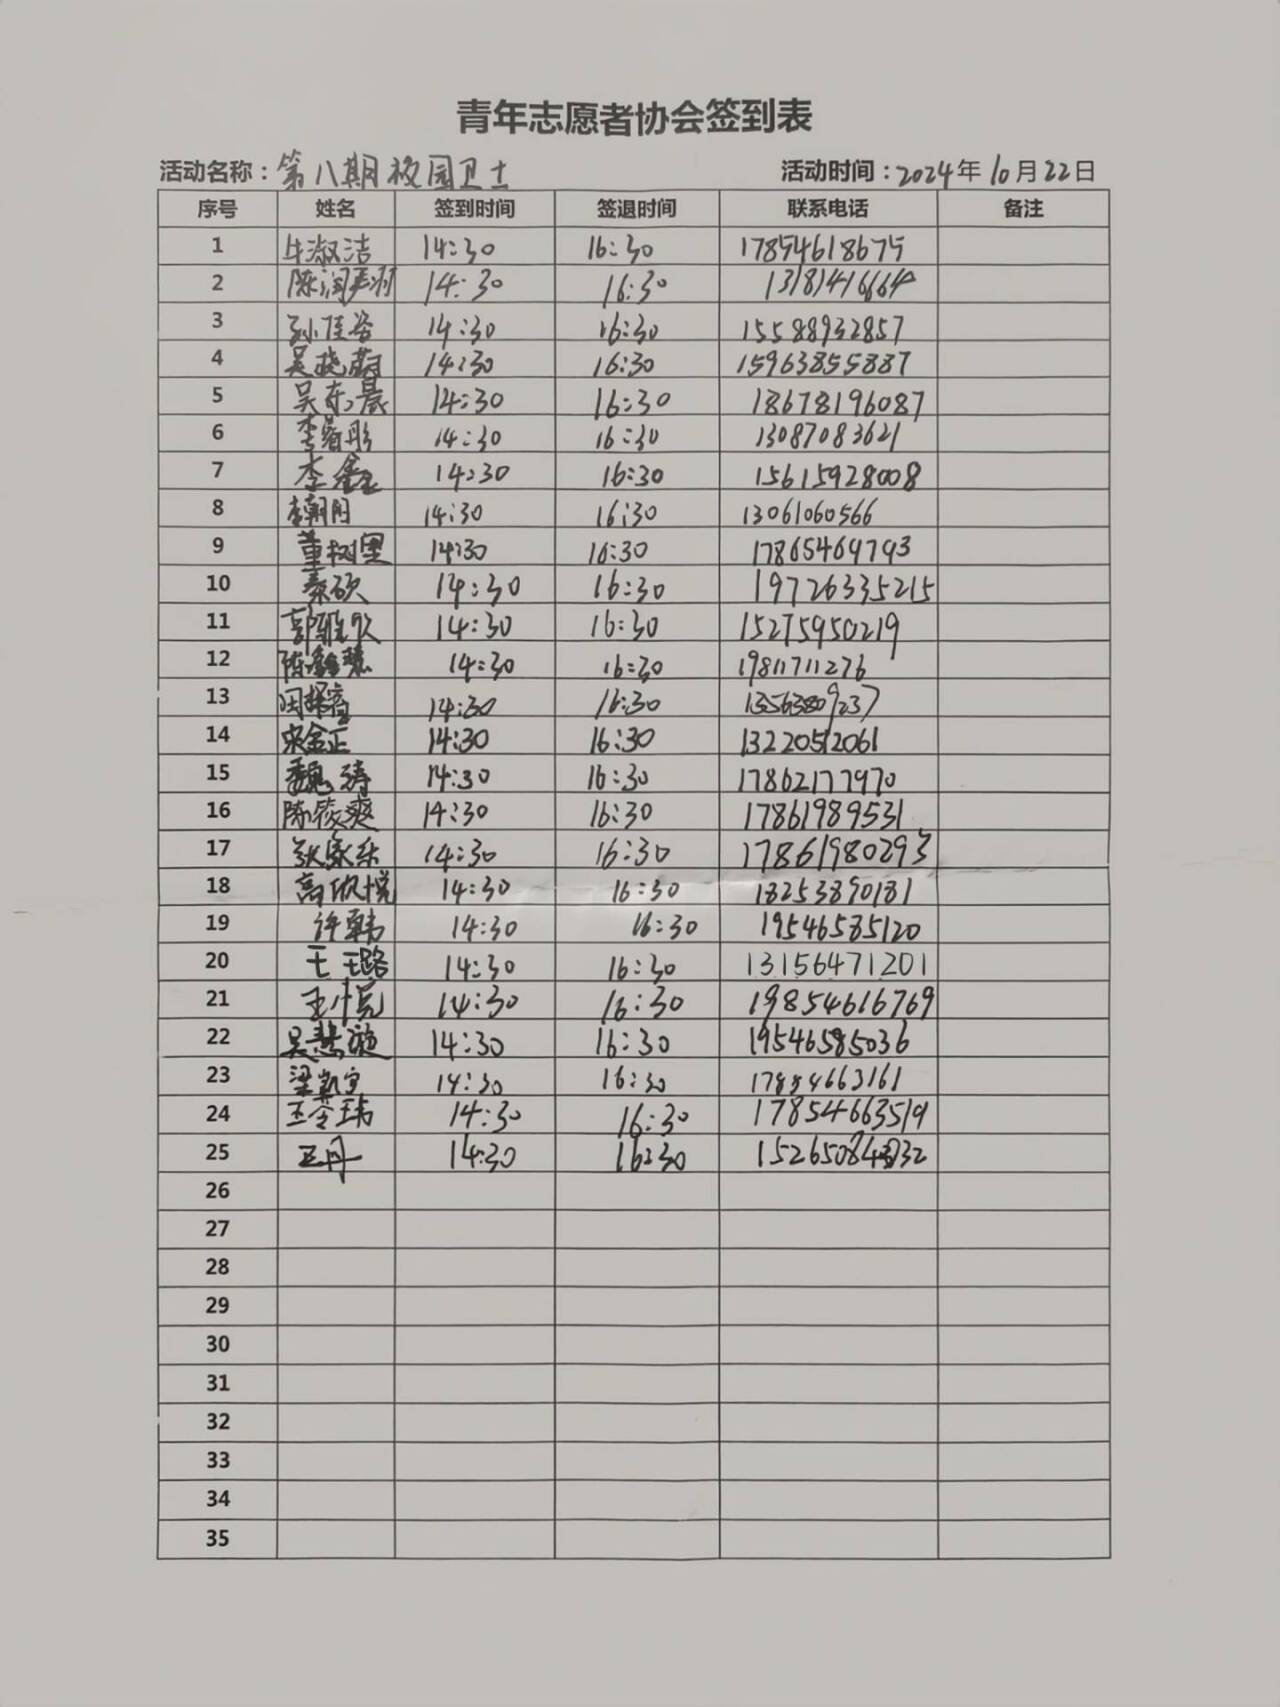 青年志愿者协会签到表
活动名称：第八期校园卫士 活动时间：2024年10月22日
序号 姓名 签到时间 签退时间 联系电话 备注
1 牛淑洁 14:30 16:30 17854618675
2 14:30 16:30 13181416664
3 孙佳容 14:30 16:30 15588932857
4 吴晓蔚 14:30 16:30 15963855887
5 吴东晨 14:30 16:30 18678196087
6 李睿彤 14:30 16:30 13087083621
7 李鑫 14:30 16:30 15615928008
8 李朝月 14:30 16:30 13061060566
9 董树里 14:30 16:30 17865469793
10 秦硕 14:30 16:30 19726335215
11 郭雅欣 14:30 16:30 15275950219
12 14:30 16:30 19811711276
13 14:30 16:30 13563809237
14 宋金正 14:30 16:30 13220512061
15 魏涛 14:30 16:30 17862177970
16 陈筱爽 14:30 16:30 17861989531
17 14:30 16:30 17861980293
18 高欣悦 14:30 16:30 18253890181
19 许韩 14:30 16:30 19546585120
20 王璐 14:30 16:30 13156471201
21 王悦 14:30 16:30 19854616769
22 吴慧漩 14:30 16:30 19546585036
23 梁凯宁 14:30 16:30 17854663161
24 王苓玮 14:30 16:30 17854663519
25 王丹 14:30 16:30
26
27
28
29
30
31
32
33
34
35